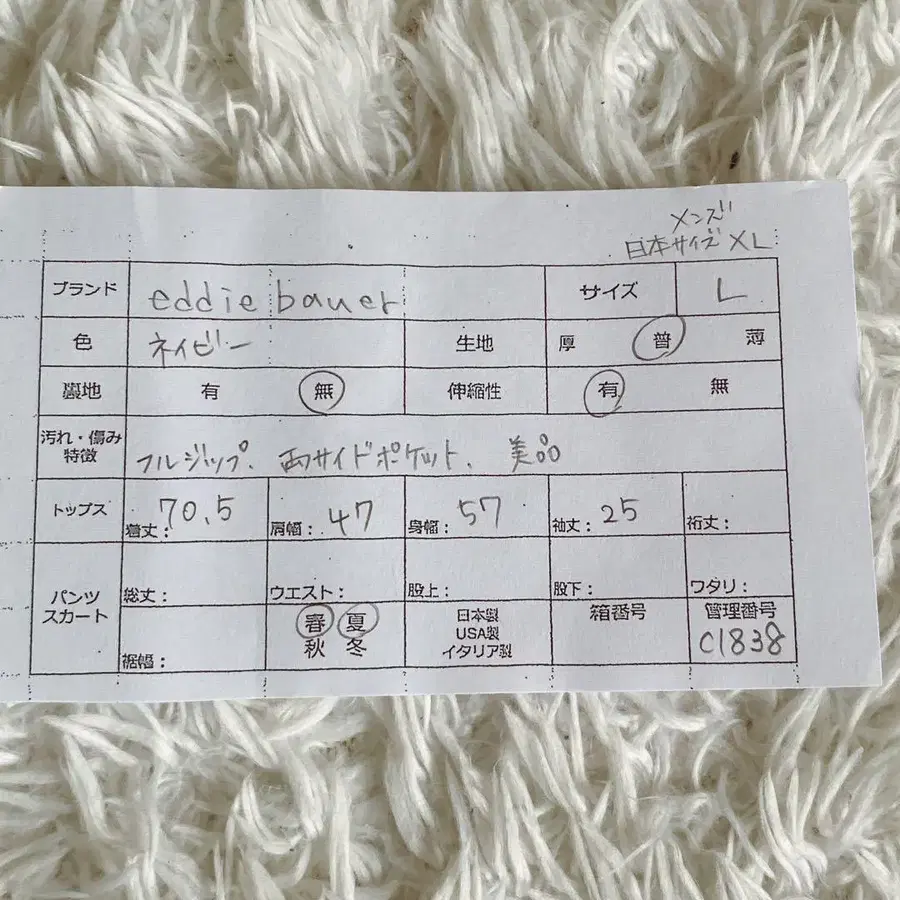 メンズ
日本サイズ XL
ブランド eddie bauer サイズ L
色 ネイビー 生地 厚 普 薄
裏地 有 無 伸縮性 有 無
汚れ・傷み
特徴 フルジップ、両サイドポケット、美品
トップス 着丈：70.5 肩幅：47 身幅：57 袖丈：25 裄丈：
パンツ
スカート 総丈： ウエスト： 股上： 股下： ワタリ：
裾幅： 春 夏 日本製 箱番号 管理番号
秋 冬 USA製 C1838
イタリア製